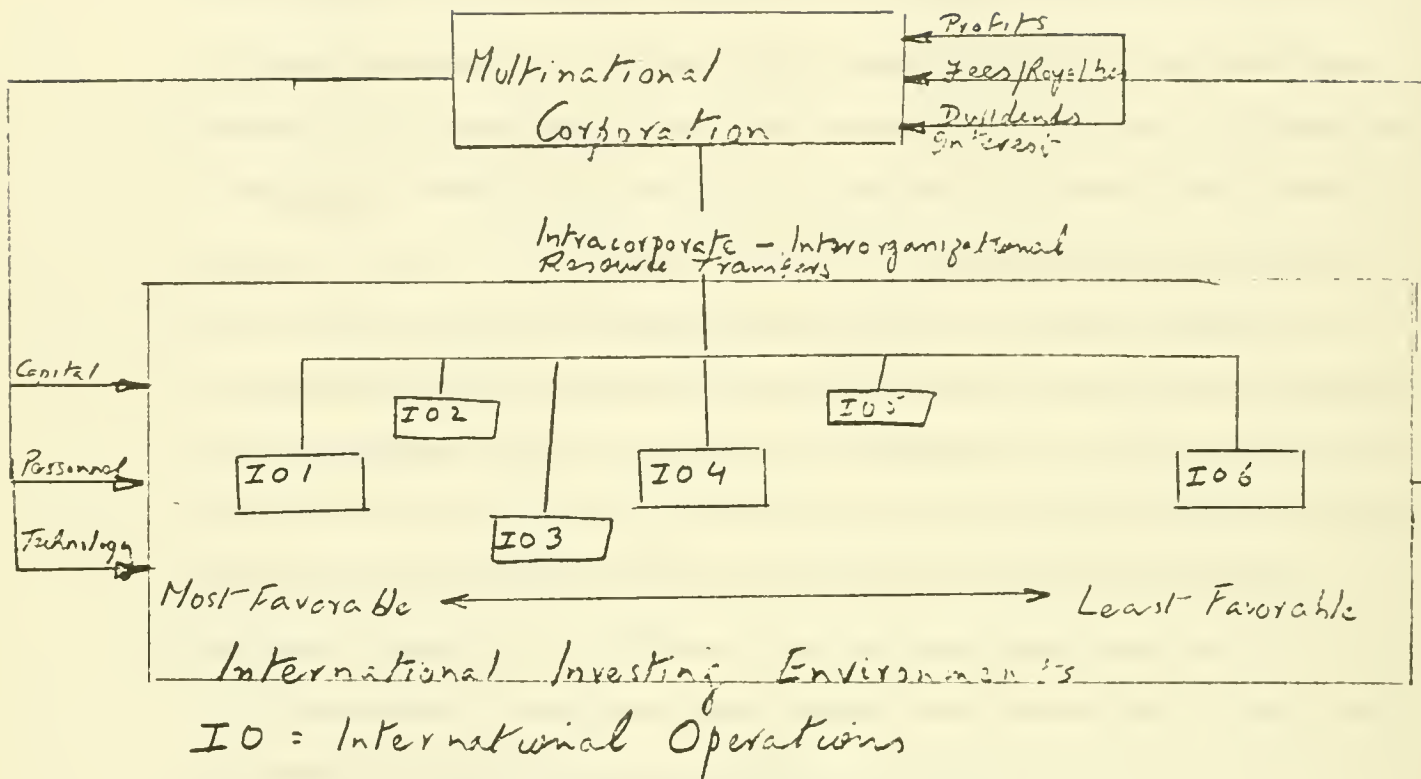 Profits
Multinational
Corporation
Fees/Royalties
Dividends
Interest
Intracorporate - Interorganizational
Resource Transfers
Capital
IO2
IO5
Personnel
IO1
IO4
IO6
Technology
IO3
Most Favorable
Least Favorable
International Investing Environments
IO = International Operations